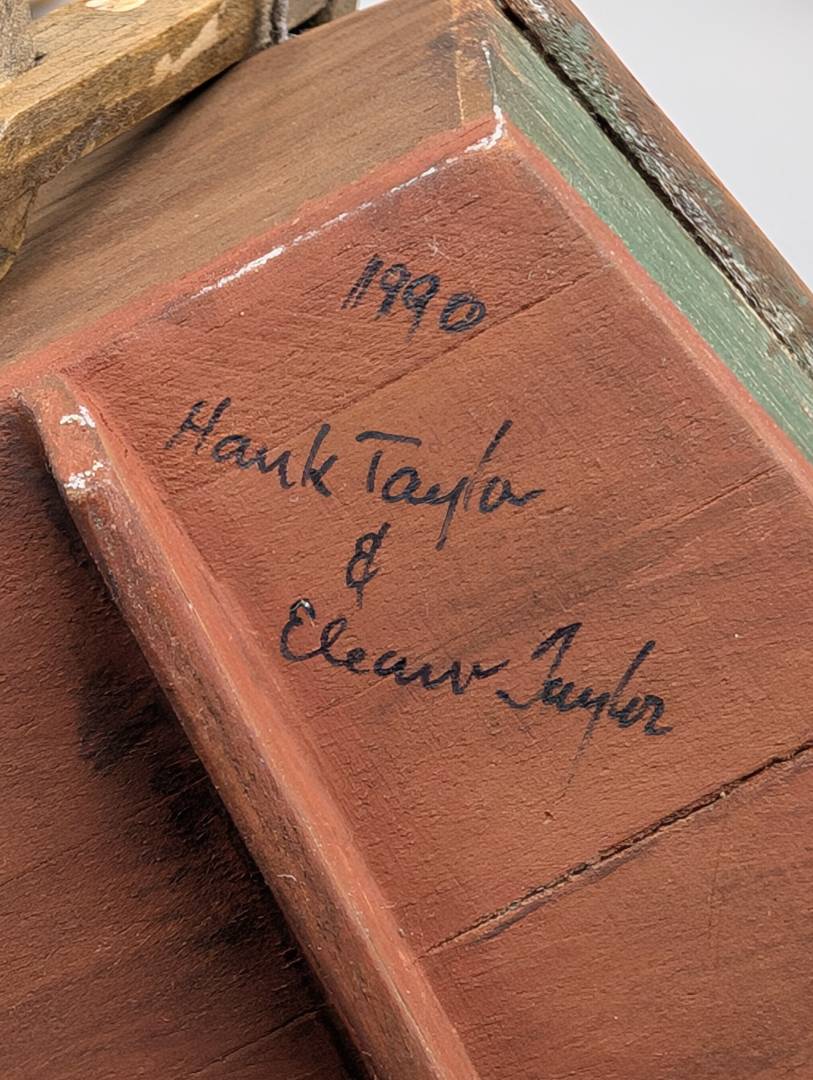 1990
Hank Taylor
&
Eleanor Taylor